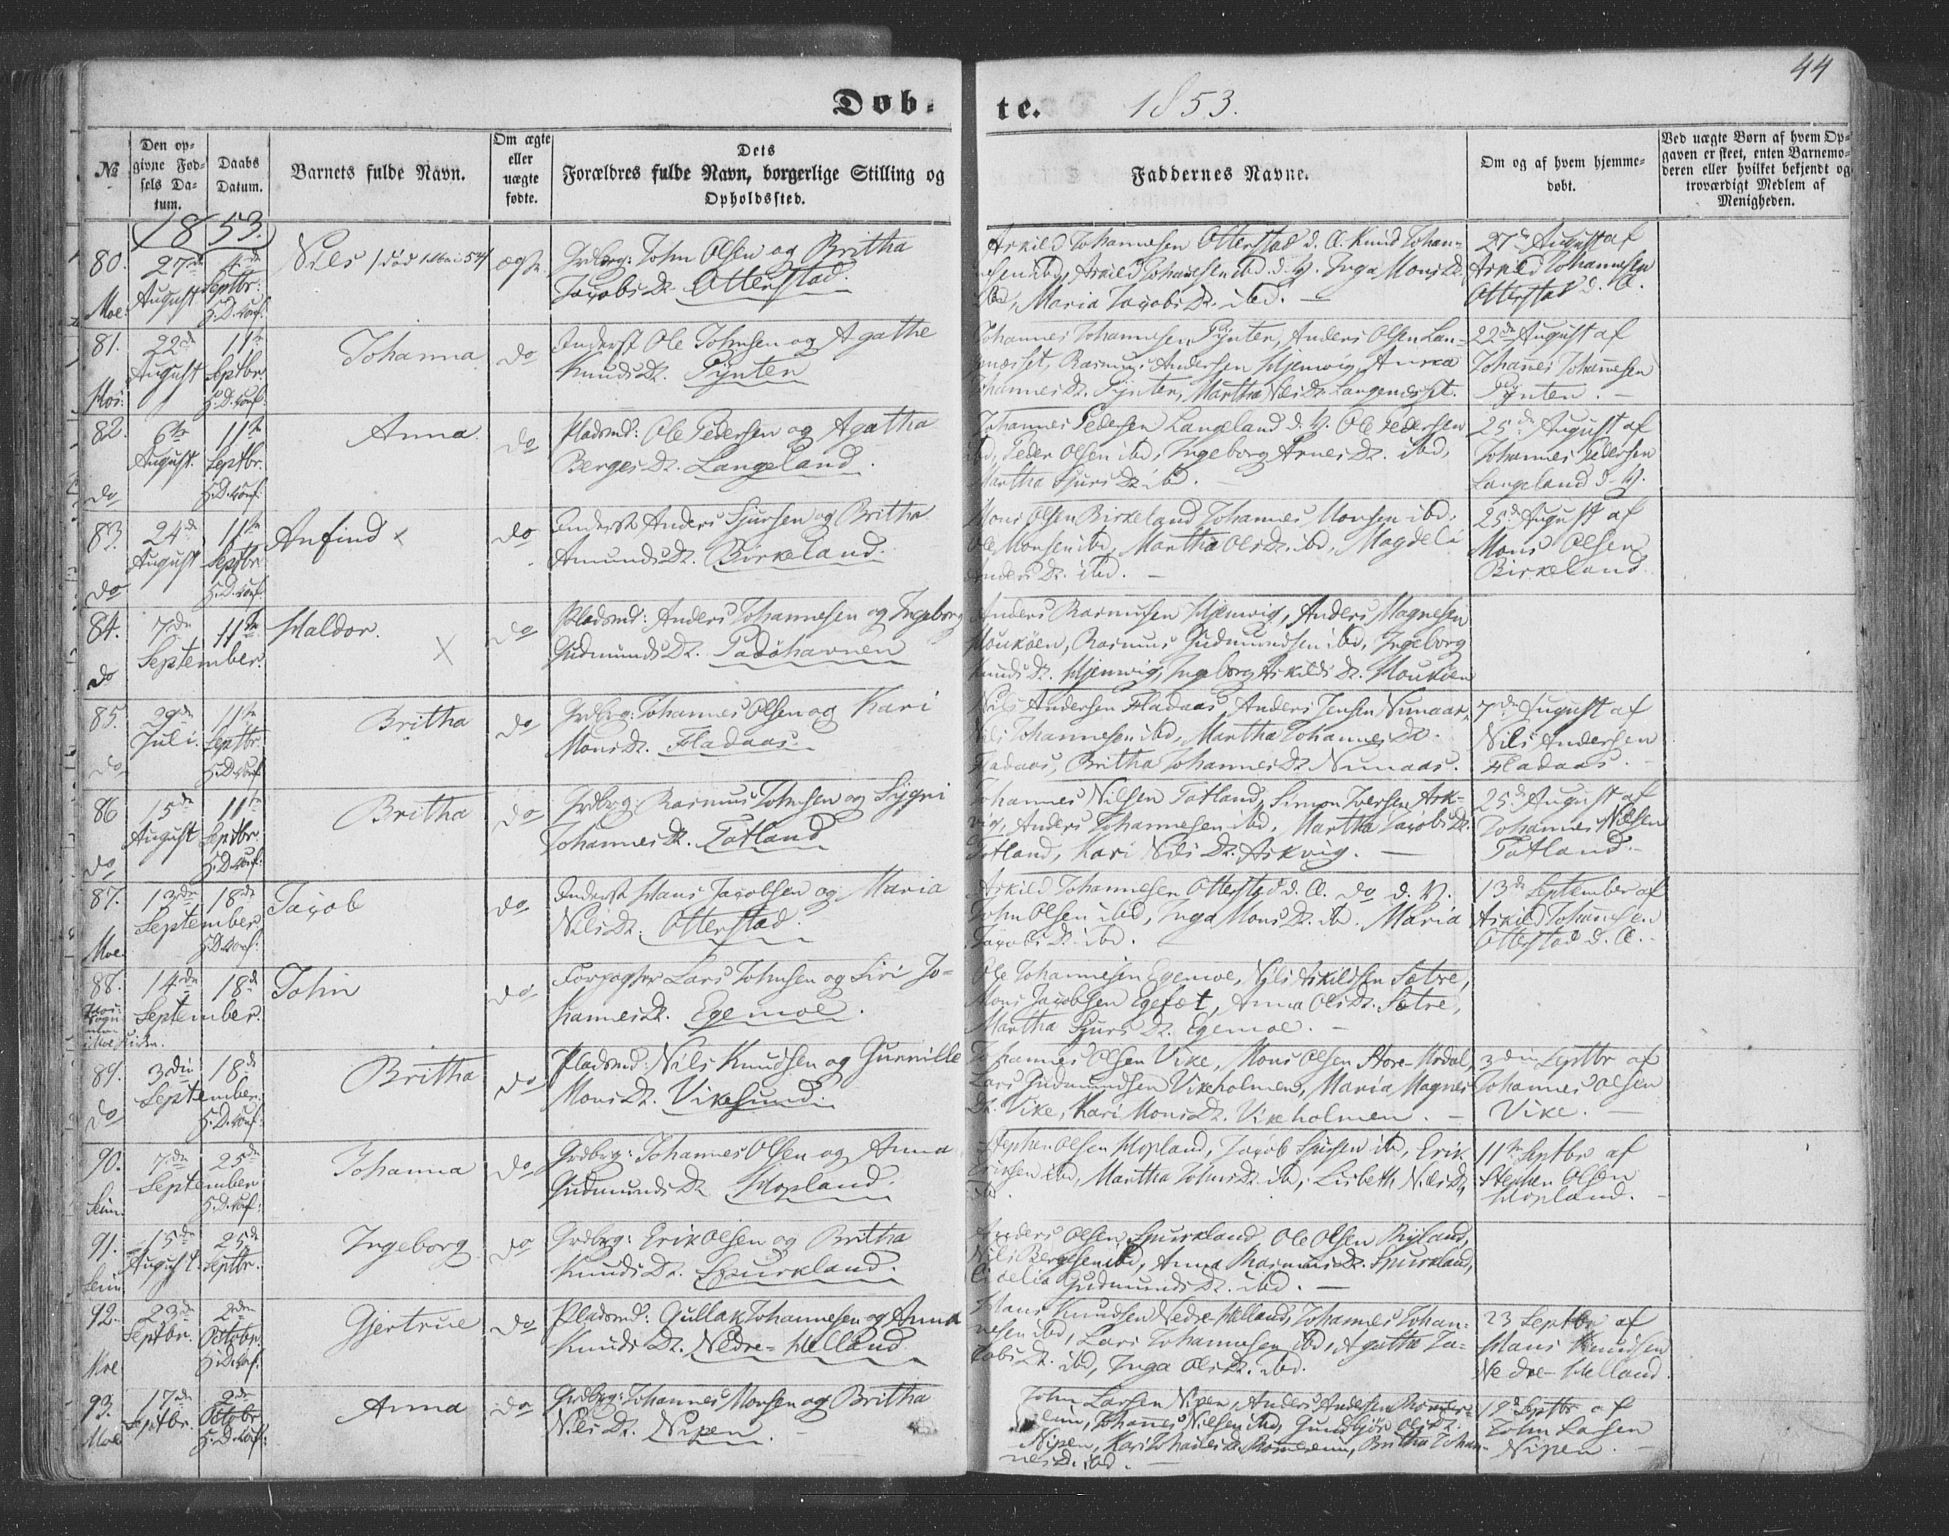 44
Døb-
te.
1853.
№
Den opgivne Fødsels Datum.
Daabs Datum.
Barnets fulde Navn.
Om ægte eller uægte fødte.
Dets Forældres fulde Navn, borgerlige Stilling og Opholdssted.
Faddernes Navne.
Om og af hvem hjemmedøbt.
Ved uægte Børn af hvem Opgaven er skeet, enten Barnemoderen eller hvilket bekjendt og troværdigt Medlem af Menigheden.
1853.
80. Moe
27de August
Septbr.
Nils
Grdbrg: John Olsen og Britha
Jacobs Dr. Otterstad.
Askild Johannesen Otterstad d. Æ. Knud Johan-
nesen ibd, Askild Johannesen ibd d. Y. Inga Mons Dr.
ibd, Maria Jacobs Dr. ibd. —
27de August af
Askild Johannesen
Otterstad d. Æ.
81.
22de August
11te Septbr.
Johanna
do
Inderst Ole Johnsen og Agathe
Knuds Dr. Pynten
Johannes Johannesen Pynten, Anders Olsen Lan-
genæsset, Rasmus Andersen Hjenvig, Anna
Johannes Dr. Pynten, Martha Nils Dr. Langenæsset.
22de August af
Johannes Johannesen
Pynten. —
82. do
6te August.
11te Septbr.
Anna
do
Pladsmd: Ole Pedersen og Agatha
Berges Dr. Langeland.
Johannes Pedersen Langeland d. Y. Ole Pedersen
ibd, Peder Olsen ibd, Ingeborg Arnes Dr. ibd,
Martha Sjurs Dr. ibd. —
25de August af
Johannes Pedersen
Langeland d. Y.
83. do
24de August
11te Septbr.
Anfind x
do
Inderst Anders Sjursen og Britha
Amunds Dr. Birkeland.
Mons Olsen Birkeland, Johannes Monsen ibd.
Ole Monsen ibd, Martha Ols Dr. ibd, Magdeli
Anders Dr. ibd. —
25de August af
Mons Olsen
Birkeland.
84. do
7de 11te
September.
Haldor. x
do
Pladsmd: Anders Johannesen og Ingeborg
Gudmunds Dr. Padøhavnen
Anders Rasmusen Hjenvig, Anders Magnesen
Moukøen, Rasmus Gudmundsen ibd, Ingeborg
Knuds Dr. Hjenvig, Ingeborg Askilds Dr. Moukøen
85. do
29de Juli
11te Septbr.
Britha
do
Grdbrg: Johannes Olsen og Kari
Mons Dr. Fladaas.
Nils Andersen Fladaas, Anders Jensen Nunaas,
Nils Johannesen ibd, Martha Johannes Dr.
Fladaas, Britha Johannes Dr. Nunaas.
7de August af
Nils Andersen
Fladaas.
86 do
15de August
11te Septbr
Britha
do
Grdbrg: Rasmus Johnsen og Siggri
Johannes Dr. Totland
Johannes Nilsen Totland, Simon Iversen Ask-
vig, Anders Johannesen ibd, Martha Jacobs Dr.
Totland, Kari Nils Dr. Askvig. —
25de August af
Johannes Nilsen
Totland. —
87. Moe
13de 18de
September
Jacob
do
Inderst Hans Jacobsen og Maria
Nils Dr. Otterstad.
Askild Johannesen Otterstad d. Æ. do d. Y.
John Olsen ibd, Inga Mons Dr. ibd. Maria
Jacobs Dr. ibd.
13de September af
Askild Johannesen
Otterstad d. Æ. —
88.
14de 18de
September.
John
do
Forpagter Lars Johnsen og Siri Jo-
hannes Dr. Egemoe.
Ole Johannesen Egemoe, Nils Askildsen Sætre,
Mons Jacobsen Egeset, Anna Ols Dr. Sætre,
Martha Sjurs Dr. Egemoe. —
89. do
3die 18de
September.
Britha
do
Pladsmd: Nils Knudsen og Gunnille
Mons Dr. Vikesund.
Johannes Olsen Vike, Mons Olsen Store-Urdal,
Lars Gudmundsen Vikeholmen, Maria Magnes
Dr. Vike, Kari Mons Dr. Vikeholmen. —
3die Septbr af
Johannes Olsen
Vike. —
90. Seim
7de 25de
September
Johanna
do
Grdbrg: Johannes Olsen og Anna
Gudmunds Dr. Hopland.
Stephen Olsen Hopland, Jacob Sjursen ibd, Erik
Eriksen ibd, Martha Johns Dr. ibd, Lisbeth Nils Dr.
ibd.
11te Septbr af
Stephen Olsen
Hopland. —
91. Seim
15de August.
25de Septbr.
Ingeborg
do
Grdbrg: Erik Olsen og Britha
Knuds Dr. Spurkland.
Anders Olsen Spurkland, Ole Olsen Byland,
Nils Bergesen ibd, Anna Rasmus Dr. Spurkland,
Gudmunds Dr. ibd. —
92. Moe
23de Septbr.
2den Octobr.
Gjertrue
do
Pladsmd: Gullak Johannesen og Anna
Knuds Dr. Nedre-Helland
Hans Knudsen Nedre-Helland, Johannes Johan-
nesen ibd, Lars Johannesen ibd, Agatha Ja-
cobs Dr. ibd, Inga Ols Dr. ibd.
23 Septbr af
Hans Knudsen
Nedre-Helland.
93. Moe
17de Septbr.
2de Octobr
Anna
do
Grdbrg: Johannes Monsen og Britha
Nils Dr. Nipen.
John Larsen Nipen, Anders Andersen
Johannes Nilsen ibd, Ols Dr.
Nipen, Kari Johannes Dr. Britha Johan-
nes Dr. ibd. —
Septbr af
John Larsen
Nipen. —